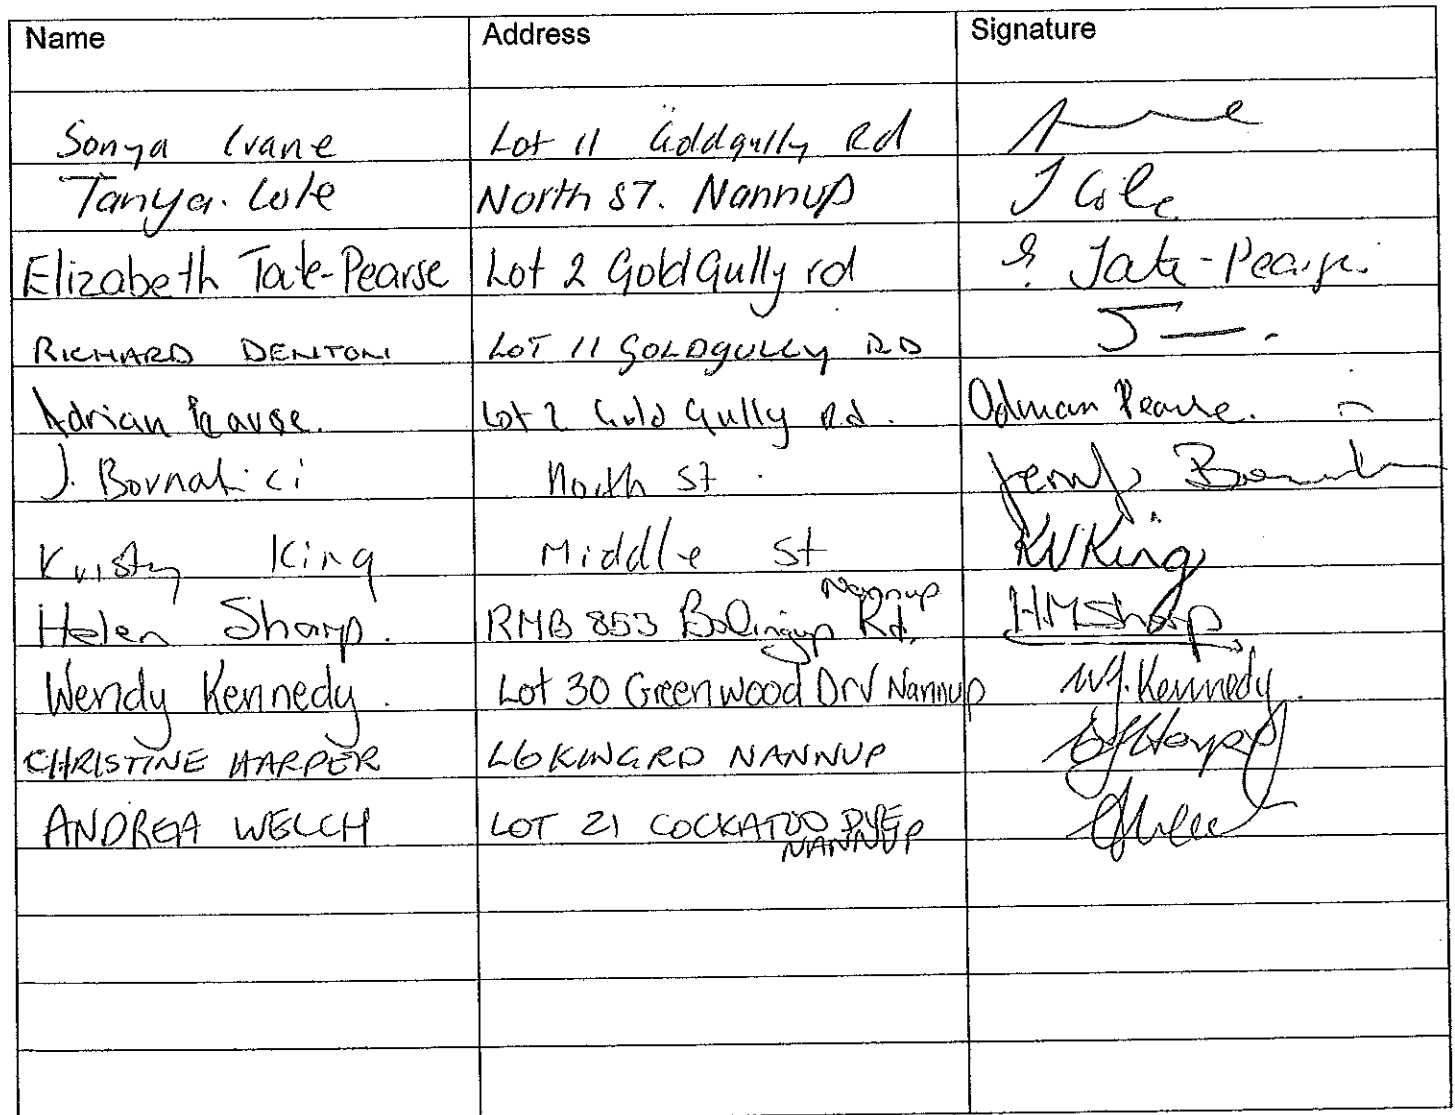 Name Address Signature
Sonya Crane Lot 11 Goldgully Rd
Tanya. Cole North ST. Nannup T Cole
Elizabeth Tate-Pearse Lot 2 Gold Gully rd E. Tate-Pearse.
RICHARD DENTON LOT 11 GOLDGULLY RD
Adrian Pearse. Lot 2 Gold Gully Rd. Pearse.
J. North St.
Kristy King Middle St KVKing
Nannup
Helen Sharp. RMB 853 Balingup Rd. HMSharp
Wendy Kennedy. Lot 30 Greenwood Drv Nannup W.J.Kennedy.
CHRISTINE HARPER L6 KING RD NANNUP
ANDREA WELCH LOT 21 COCKATOO DVE
NANNUP